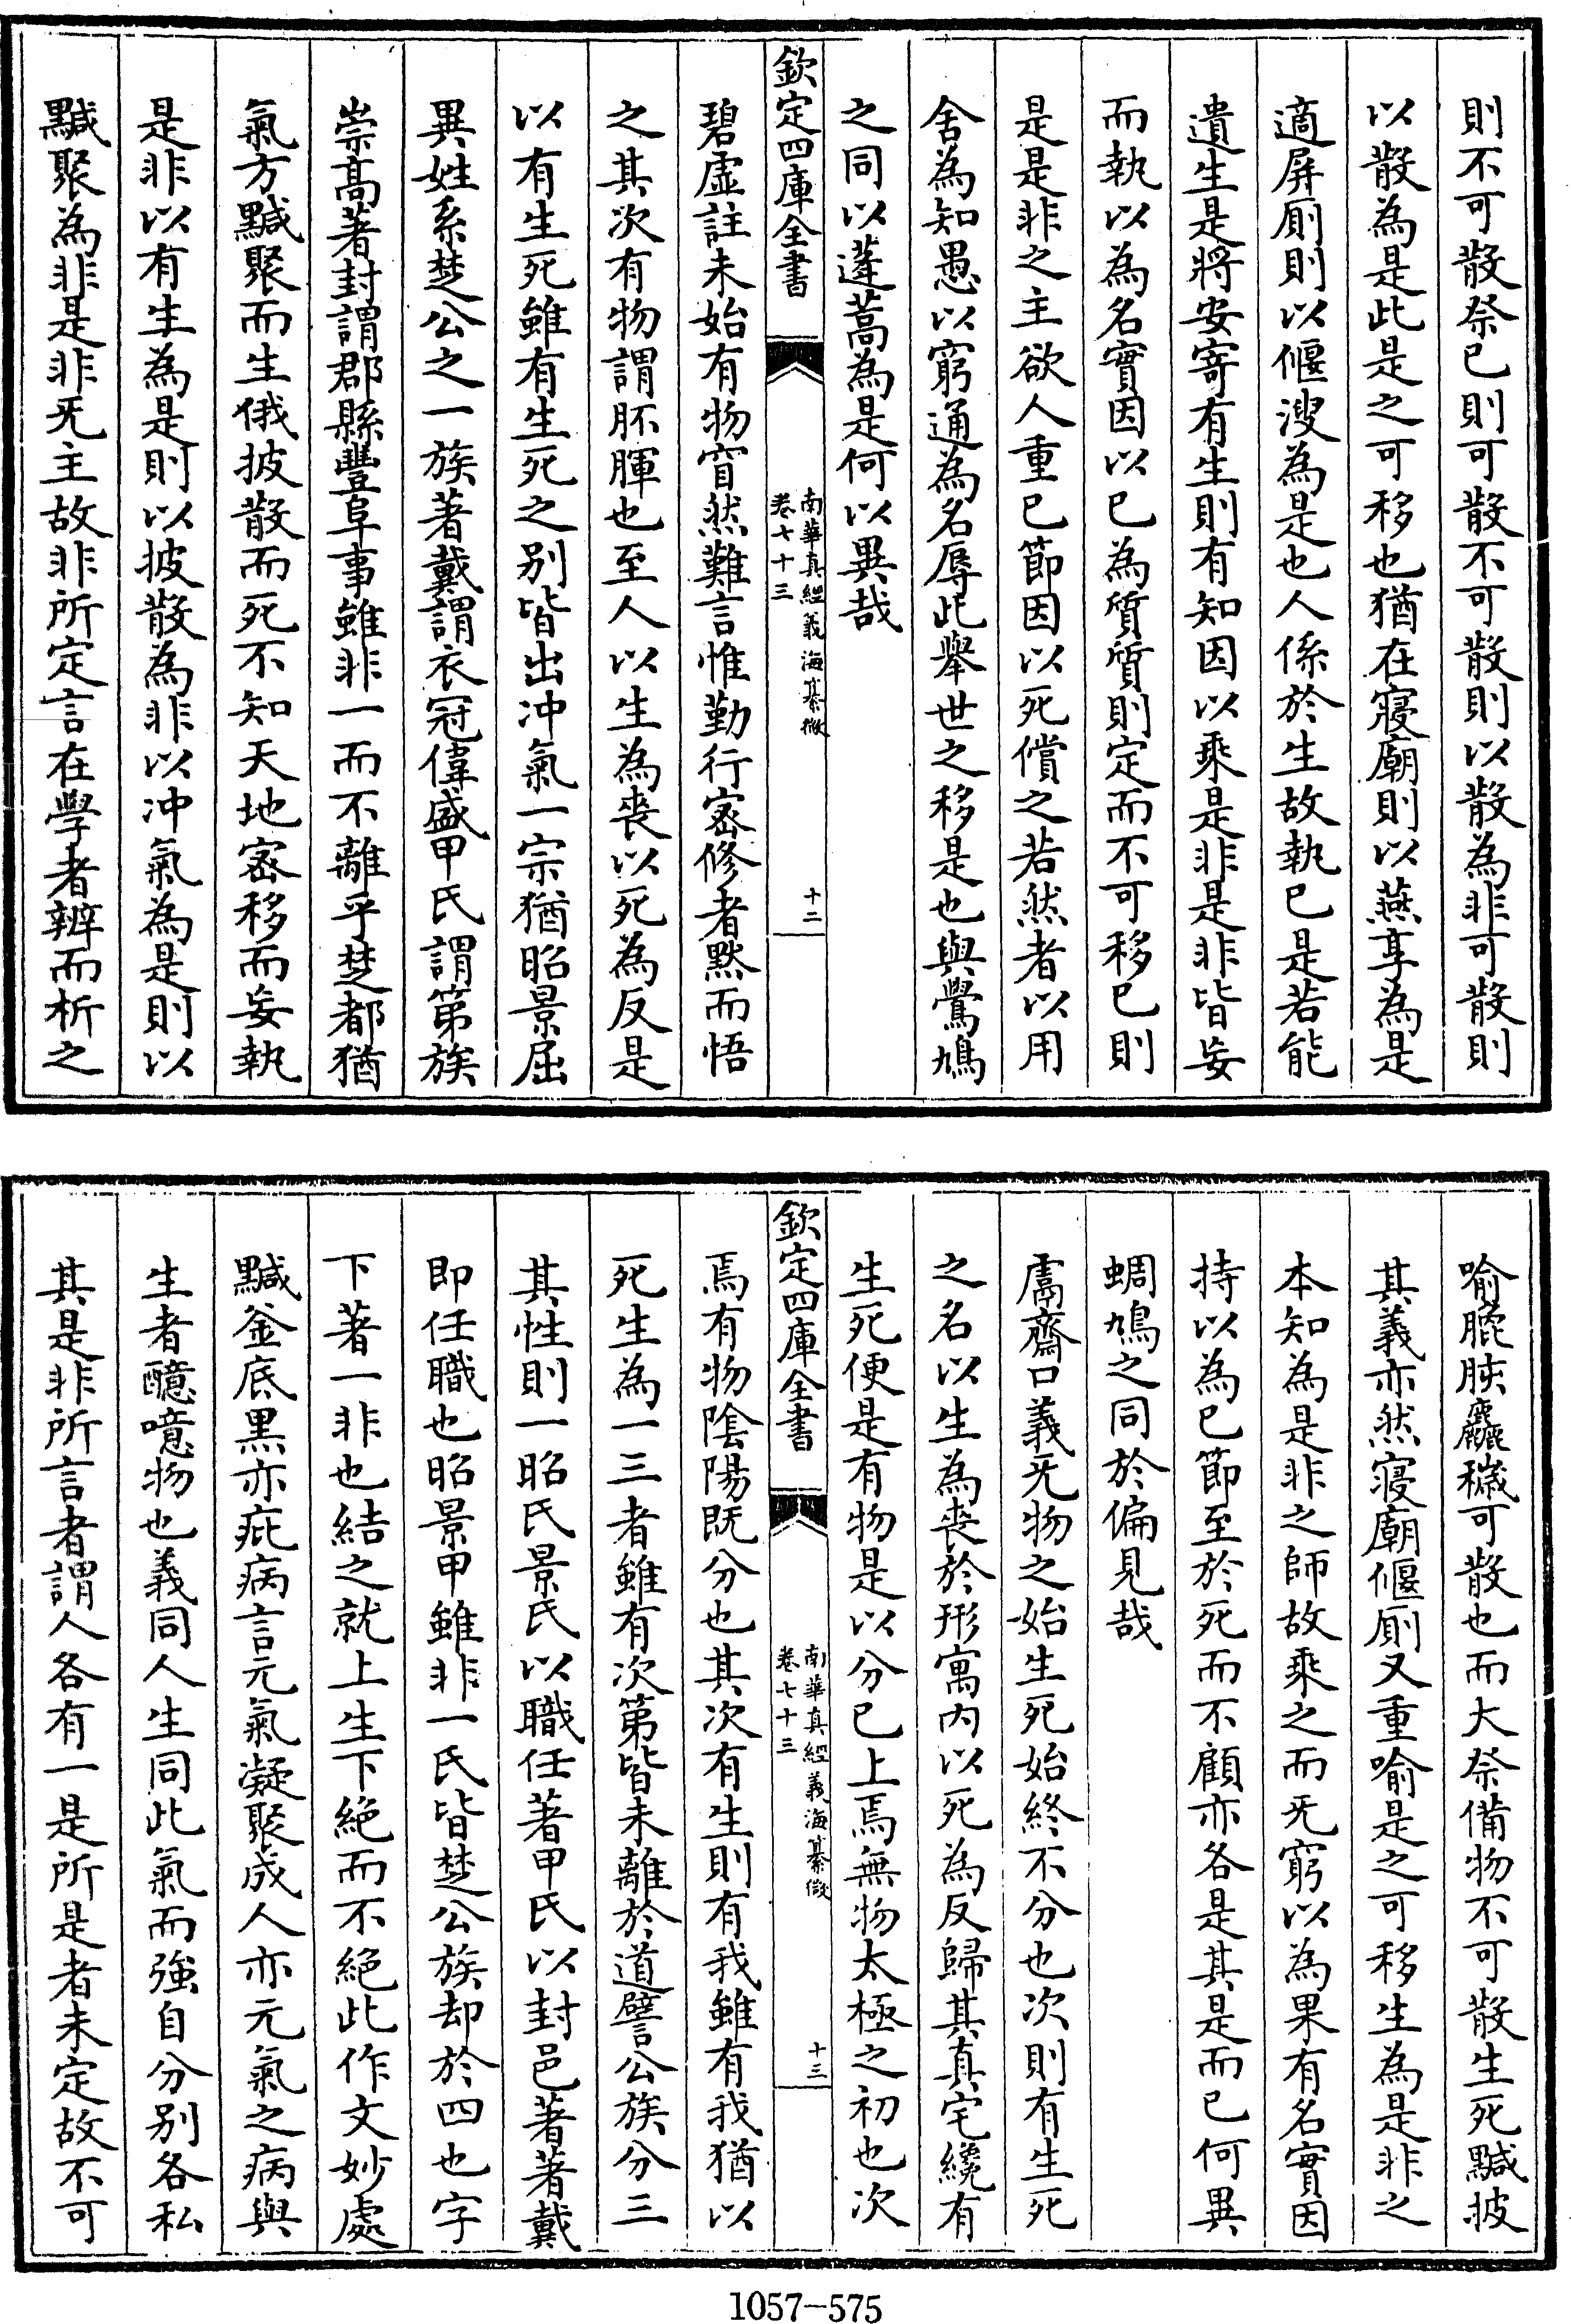 則不可散祭已則可散不可散則以散為非可散則
以散為是此是之可移也猶在寢廟則以燕享為是
適屏廁則以偃溲為是也人係於生故執已是若能
遺生是將安寄有生則有知因以乘是非是非皆妄
而執以為名實因以已為質質則定而不可移已則
是是非之主欲人重已節因以死償之若然者以用
舍為知愚以窮通為名辱此舉世之移是也與鷽鳩
之同以蓬蒿為是何以異哉
欽定四庫全書
南華真經義海纂微
卷七十三
十二
碧虛註未始有物窅然難言惟勤行密修者默而悟
之其次有物謂胚腪也至人以生為喪以死為反是
以有生死雖有生死之別皆出沖氣一宗猶昭景屈
異姓系楚公之一族著戴謂衣冠偉盛甲氏謂第族
崇高著封謂郡縣豐阜事雖非一而不離乎楚都猶
氣方黬聚而生俄披散而死不知天地密移而妄執
是非以有生為是則以披散為非以沖氣為是則以
黬聚為非是非旡主故非所定言在學者辨而析之
喻臗胲麤穢可散也而大祭備物不可散生死黬披
其義亦然寢廟偃廁又重喻是之可移生為是非之
本知為是非之師故乘之而旡窮以為果有名實因
持以為已節至於死而不顧亦各是其是而已何異
蜩鳩之同於偏見哉
鬳齋口義旡物之始生死始終不分也次則有生死
之名以生為喪於形寓內以死為反歸其真宅纔有
生死便是有物是以分已上焉無物太極之初也次
欽定四庫全書
南華真經義海纂微
卷七十三
十三
焉有物陰陽既分也其次有生則有我雖有我猶以
死生為一三者雖有次第皆未離於道譬公族分三
其性則一昭氏景氏以職任著甲氏以封邑著著戴
即任職也昭景甲雖非一氏皆楚公族却於四也字
下著一非也結之就上生下絕而不絕此作文妙處
黬釜底黑亦疵病言元氣凝聚成人亦元氣之病與
生者醷噫物也義同人生同此氣而強自分別各私
其是非所言者謂人各有一是所是者未定故不可
1057-575